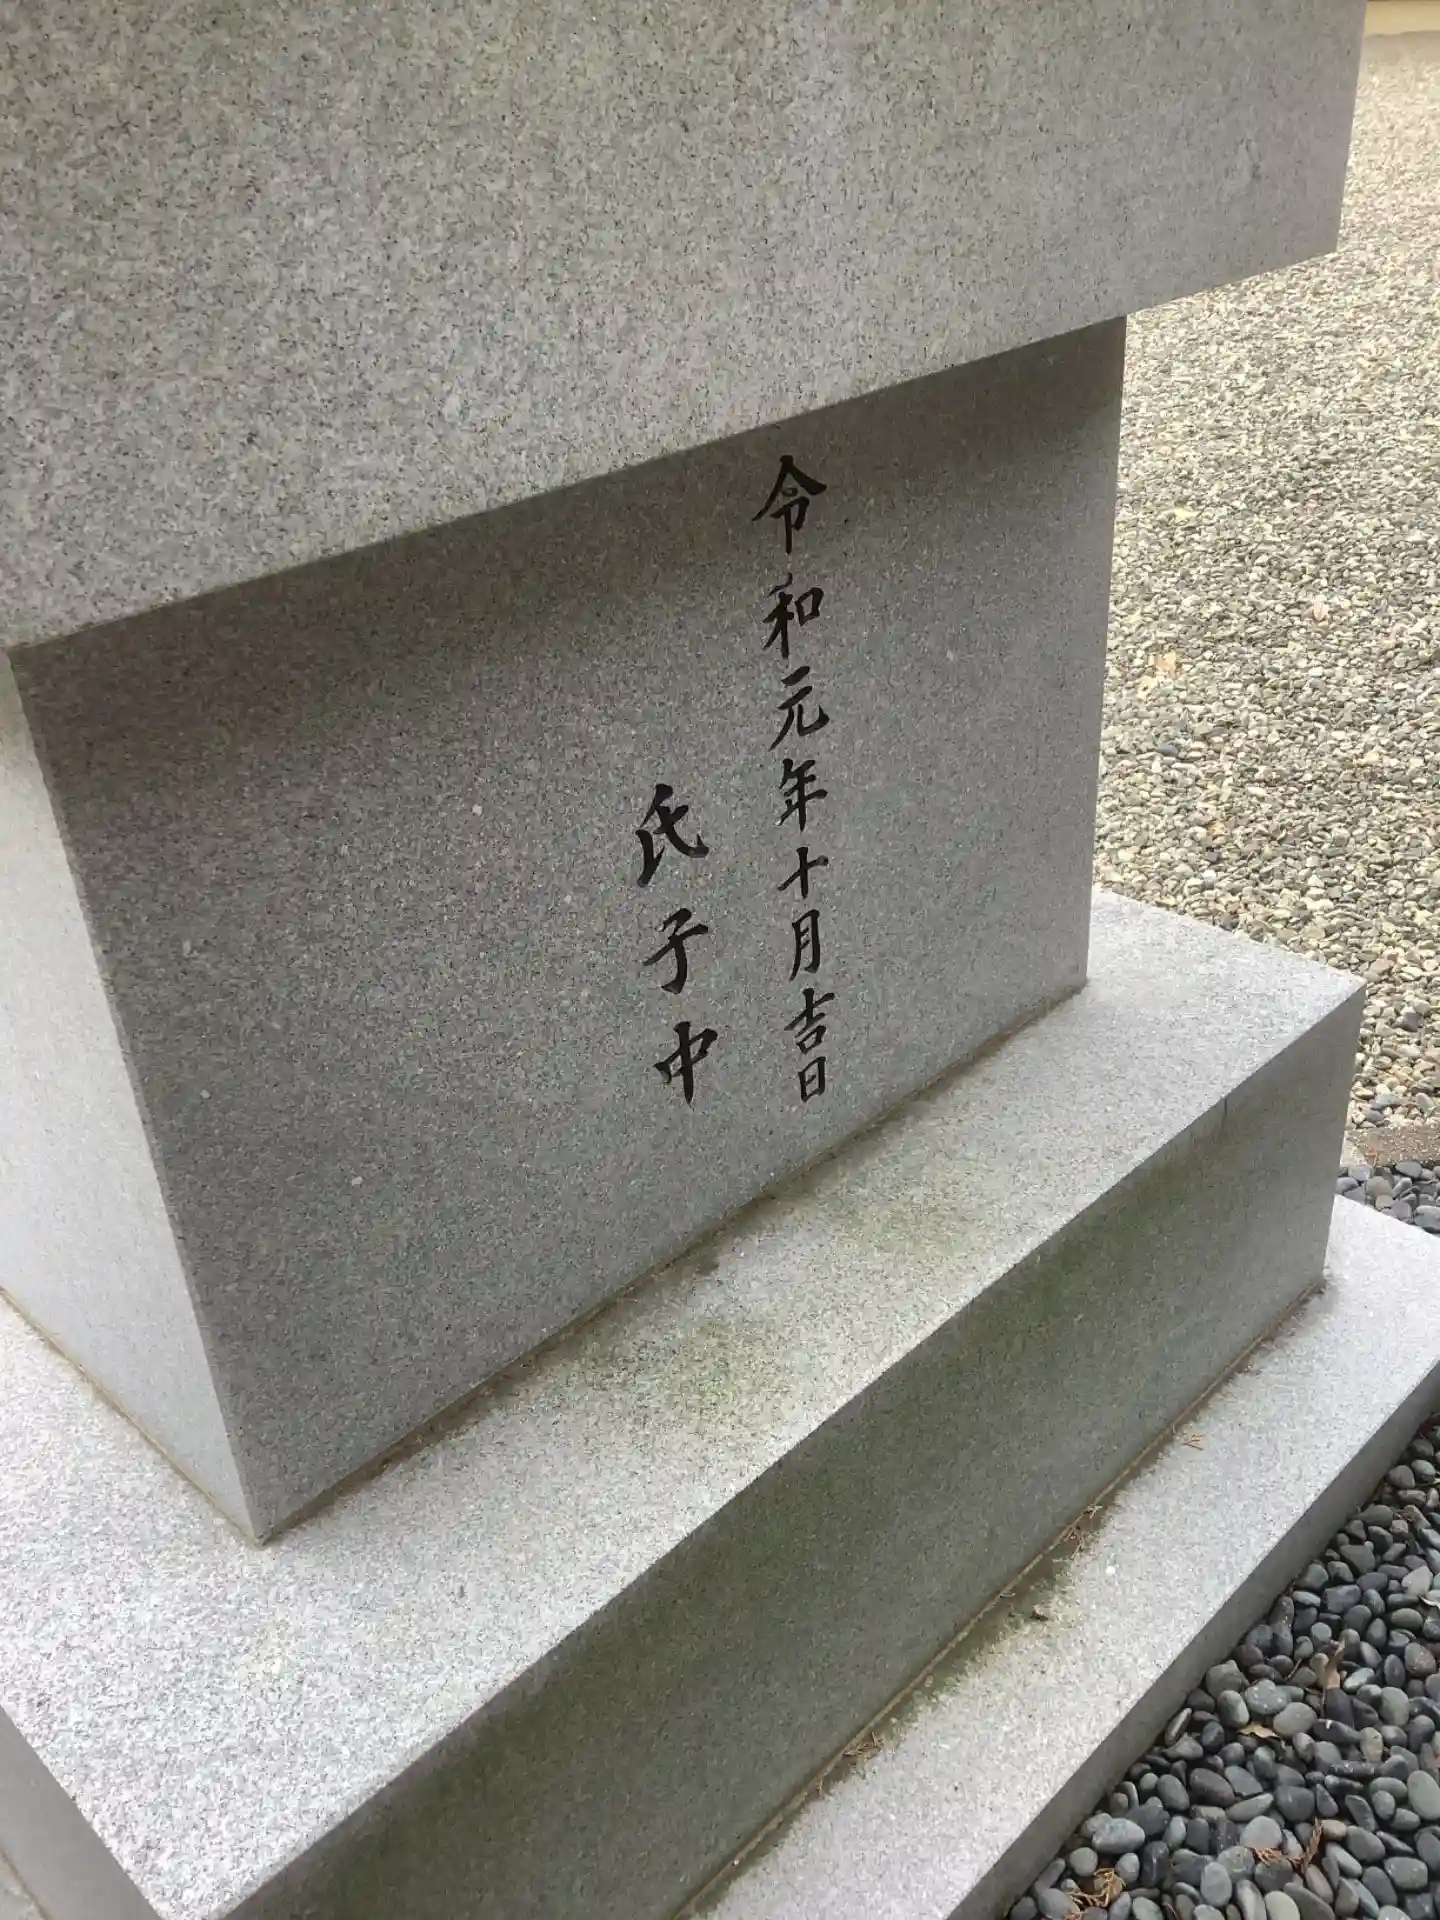 令和元年十月吉日
氏子中